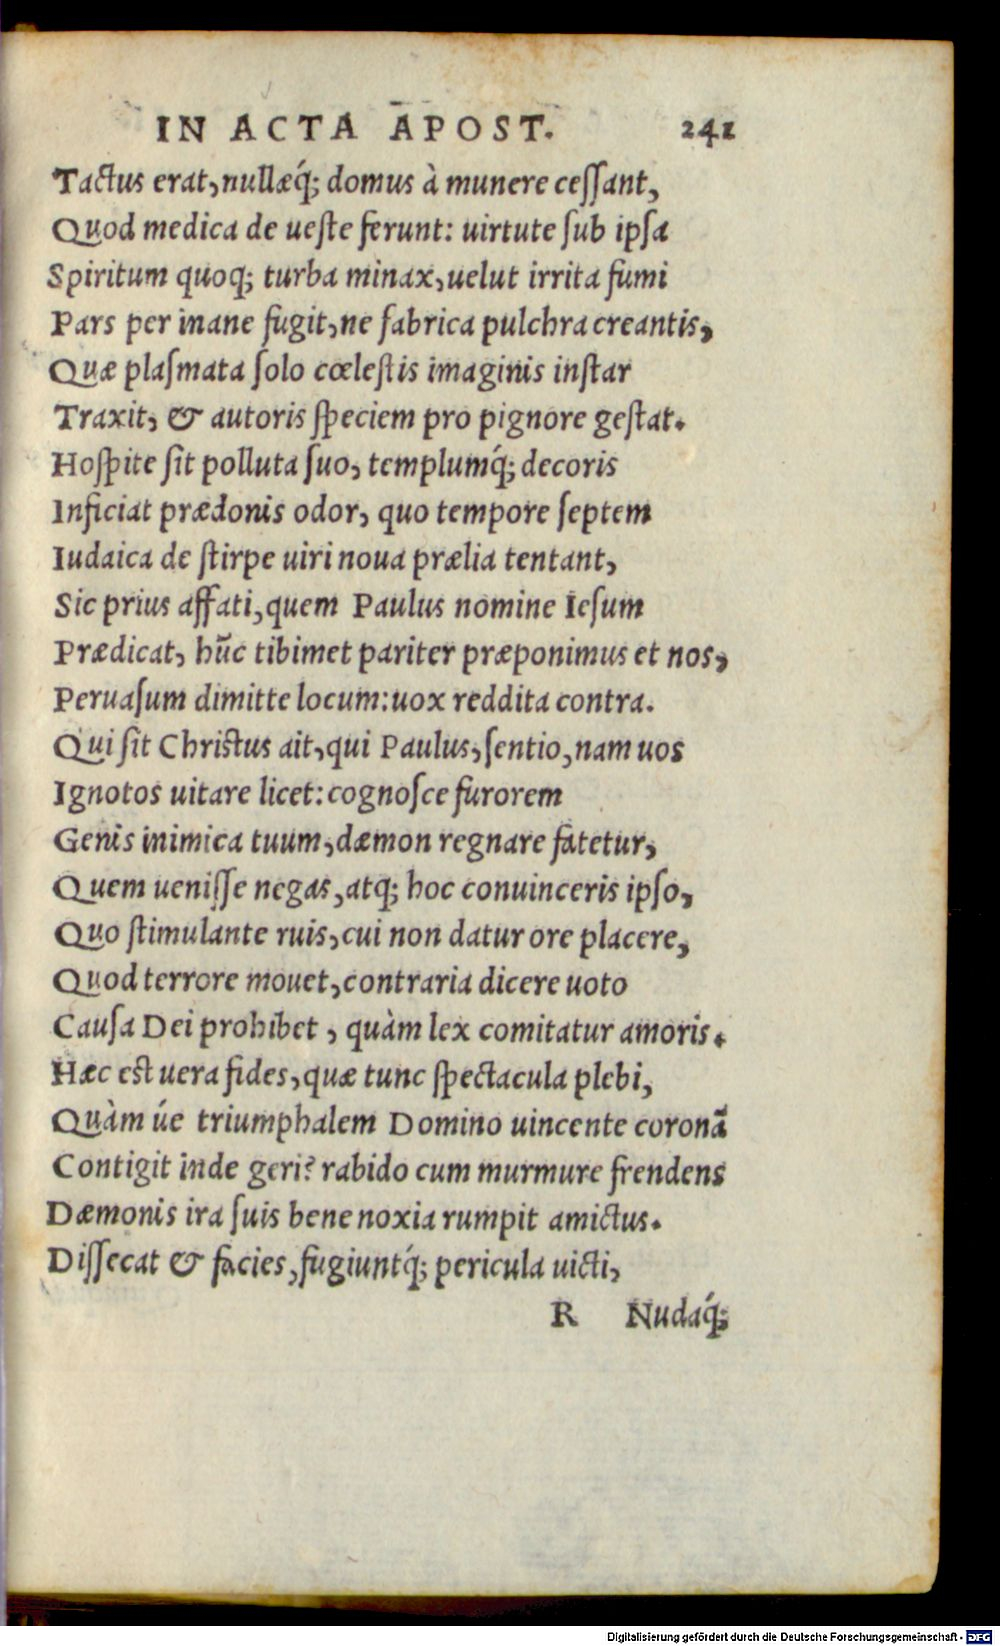 IN ACTA APOST. 241
Tactus erat, nullæq́; domus à munere ceſſant,
Quod medica de ueſte ferunt: uirtute ſub ipſa
Spiritum quoq; turba minax, uelut irrita fumi
Pars per inane fugit, ne fabrica pulchra creantis,
Quæ plaſmata ſolo cœleſtis imaginis inſtar
Traxit, & autoris ſpeciem pro pignore geſtat.
Hoſpite ſit polluta ſuo, templumq́; decoris
Inficiat prædonis odor, quo tempore ſeptem
Iudaica de ſtirpe uiri noua prælia tentant,
Sic prius affati, quem Paulus nomine Ieſum
Prædicat, hūc tibimet pariter præponimus et nos,
Peruaſum dimitte locum: uox reddita contra.
Qui ſit Chriſtus ait, qui Paulus, ſentio, nam uos
Ignotos uitare licet: cognoſce furorem
Genis inimica tuum, dæmon regnare fatetur,
Quem ueniſſe negas, atq; hoc conuinceris ipſo,
Quo ſtimulante ruis, cui non datur ore placere,
Quod terrore mouet, contraria dicere uoto
Cauſa Dei prohibet, quàm lex comitatur amoris.
Hæc eſt uera fides, quæ tunc ſpectacula plebi,
Quàm úe triumphalem Domino uincente coronā
Contigit inde geri? rabido cum murmure frendens
Dæmonis ira ſuis bene noxia rumpit amictus.
Diſſecat & facies, fugiuntq́; pericula uicti,
R Nudaq́;
Digitalisierung gefördert durch die Deutsche Forschungsgemeinschaft - DFG